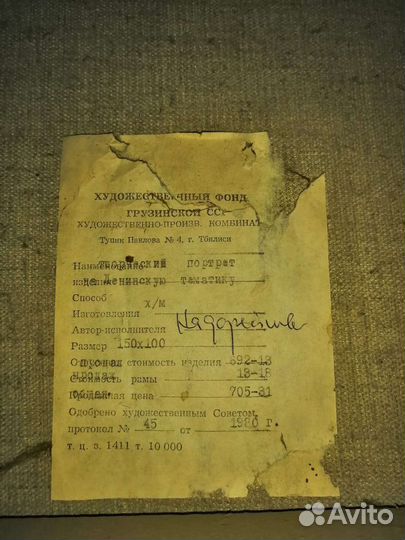 ХУДОЖЕСТВЕННЫЙ ФОНД
ГРУЗИНСКОЙ ССР
ХУДОЖЕСТВЕННО-ПРОИЗВ. КОМБИНАТ
Тупик Павлова № 4, г. Тбилиси
Наименование творческий портрет
изделия на Ленинскую тематику
Способ
Изготовления х/м
Автор-исполнителя
Размер 150х100
стоимость изделия 692-13
Стоимость рамы 13-18
Продажная цена 705-31
Одобрено художественным Советом
протокол № 45 от 1980 г.
т. ц. з. 1411 т. 10 000
Avito